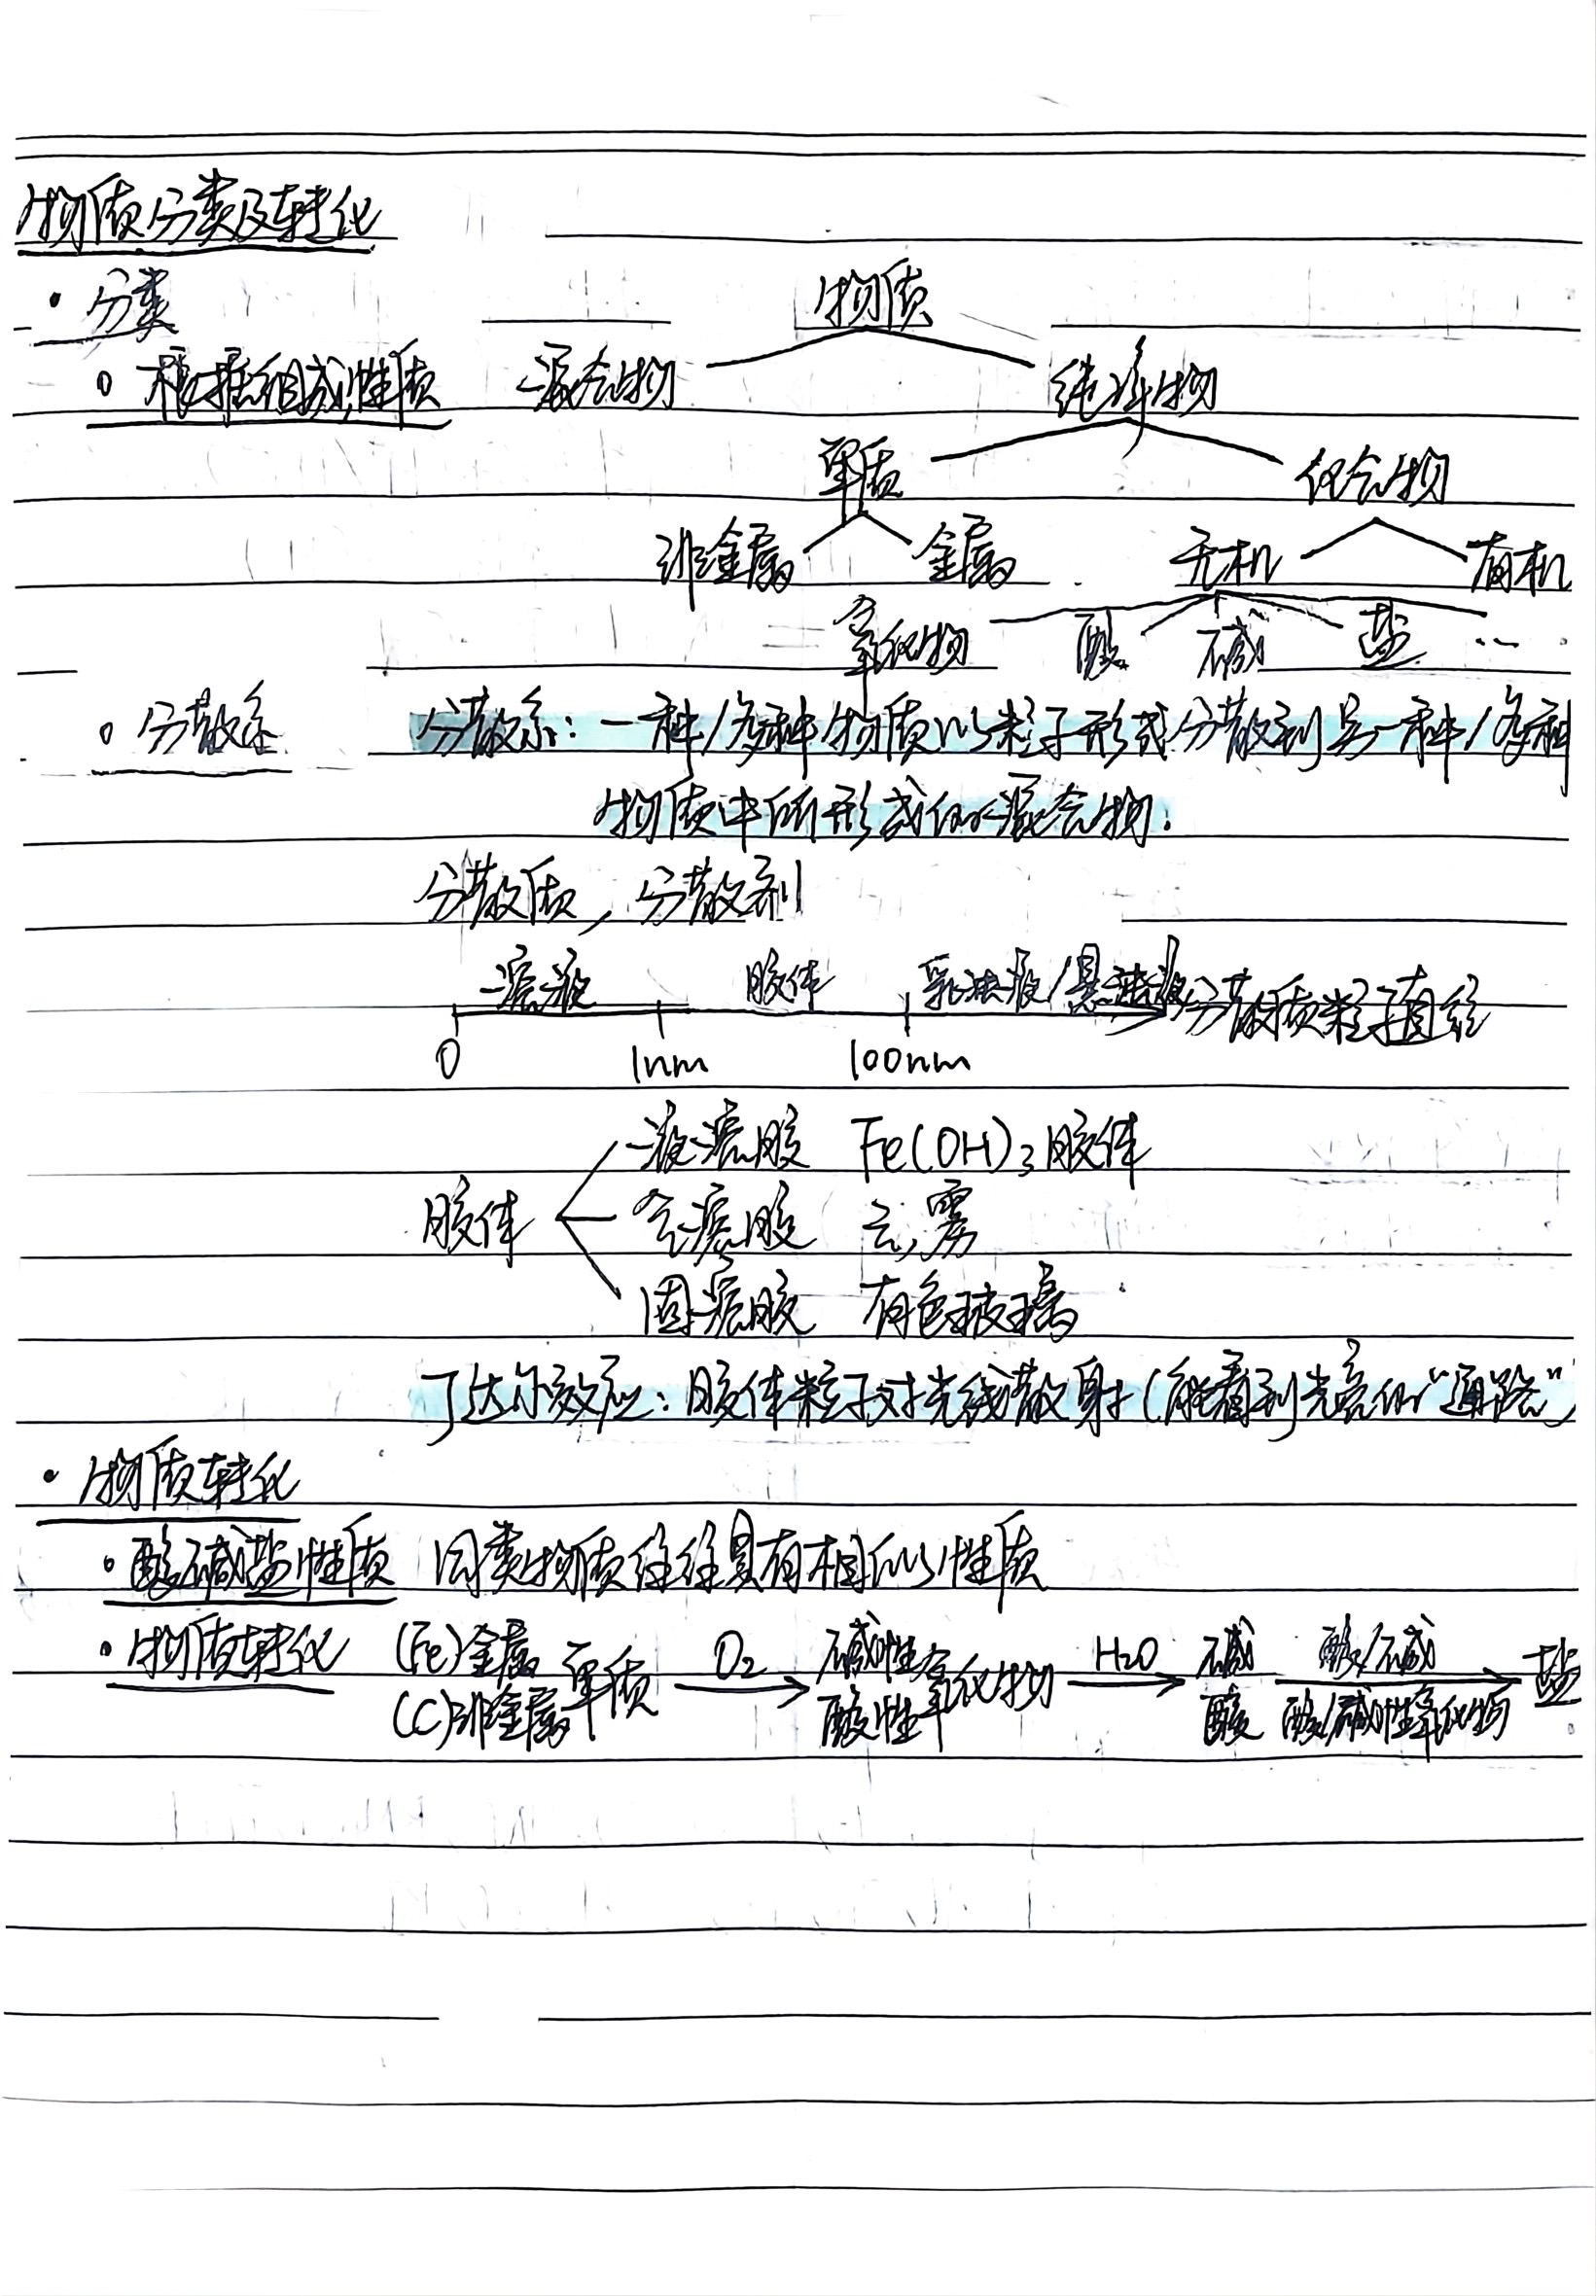 物质分类及转化
· 分类 物质
根据组成、性质 混合物 纯净物
单质 化合物
非金属 金属 无机 有机
氧化物 酸 碱 盐 …
分散系 分散系：一种/多种物质以粒子形式分散到另一种/多种
物质中所形成的混合物.
分散质，分散剂
溶液 胶体 乳浊液/悬浊液 分散质粒子直径
0 1nm 100nm
液溶胶 Fe(OH)₃胶体
胶体 气溶胶 云,雾
固溶胶 有色玻璃
丁达尔效应：胶体粒子对光线散射(能看到光亮的“通路”)
· 物质转化
· 酸碱盐性质 同类物质往往具有相似性质
· 物质转化 (Fe)金属 单质 O₂→ 碱性 氧化物 H₂O→ 碱 酸/碱→ 盐
(C)非金属 酸性 酸 酸/碱性氧化物